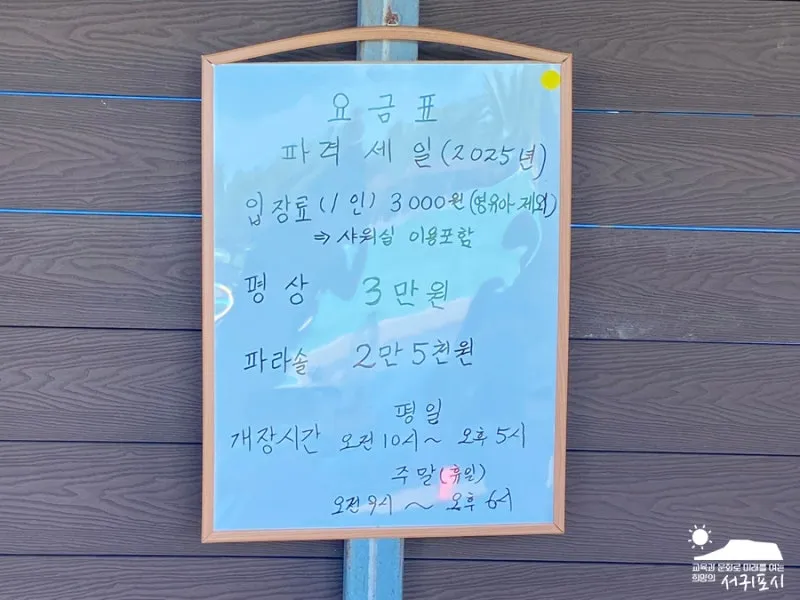 요금표
파격 세일 (2025년)
입장료 (1인) 3000원 (영유아 제외)
⇒ 샤워실 이용포함
평상 3만원
파라솔 2만 5천원
평일
개장시간 오전 10시~ 오후 5시
주말 (휴일)
오전 9시 ~ 오후 6시
교육과 문화로 미래를 여는
희망의 서귀포시